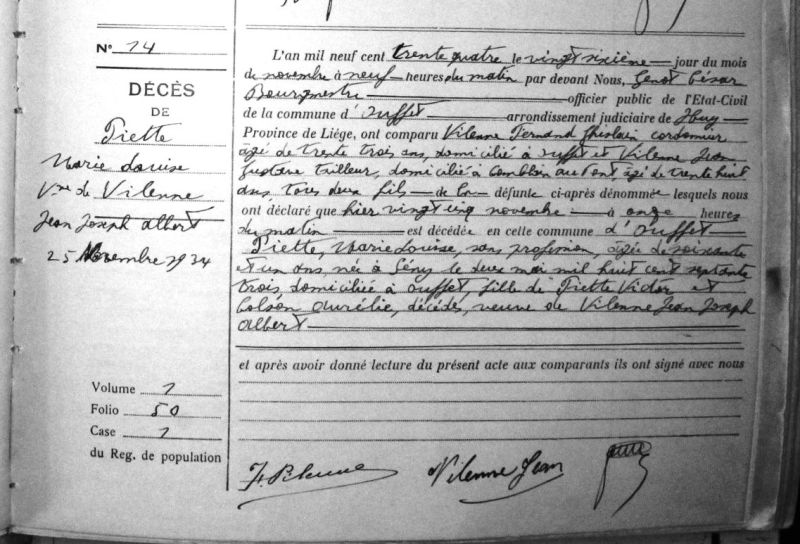 N° 14
DÉCÈS
DE
Piette
Marie Louise
Vve de Vilenne
Jean Joseph Albert
25 Novembre 1934
Volume 1
Folio 50
Case 1
du Reg. de population
L'an mil neuf cent trente quatre le vingt sixième jour du mois
de novembre à neuf heures du matin par devant Nous, Genot César
Bourgmestre officier public de l'Etat-Civil
de la commune d'Ouffet arrondissement judiciaire de Huy
Province de Liége, ont comparu Vilenne Fernand Ghislain cordonnier
âgé de trente trois ans, domicilié à Ouffet et Vilenne Jean
Gustave tailleur, domicilié à Comblain au Pont âgé de trente huit
ans tous deux fils de la défunte ci-après dénommée lesquels nous
ont déclaré que hier vingt cinq novembre à onze heures
du matin est décédée en cette commune d'Ouffet
Piette, Marie Louise, sans profession, âgée de soixante
et un ans, née à Seny le deux mai mil huit cent septante
trois, domiciliée à Ouffet, fille de Piette Victor et
Colson Aurélie, décédés, veuve de Vilenne Jean Joseph
Albert
et après avoir donné lecture du présent acte aux comparants ils ont signé avec nous
Vilenne Jean